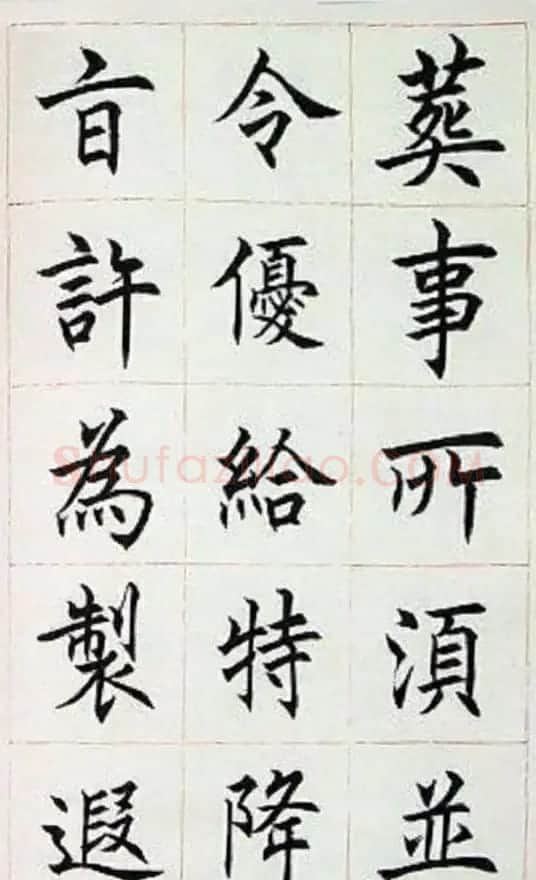 葬事所須並
令優給特降
㫖許為製遐
Shufazidao.com